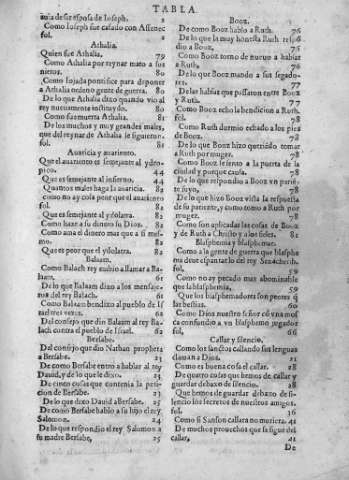 TABLA.
auia de ser esposa de Ioseph. 2
Como Ioseph fue casado con Assenec
fol. 2
Athalia.
Quien fue Athalia, 79
Como Athalia por reynar mato a sus
nietos. 80
Como Ioyada pontifice para deponer
a Athalia ordeno gente de guerra. 80
De lo que Athalia dixo quando vio al
rey nueuamente instituydo. 80
Como fue muerta Athalia. 81
De los muchos y muy grandes males,
que del reynar de Athalia se siguieron.
fol. 81
Auaricia y auariento.
Que el auariento es semejante al ydro-
pico. 44
Que es semejante al infierno. 44
Quatros males haga la auaricia. 82
como no ay cosa peor que el auariento
fol. 82
Que es semejante al ydolatra. 82
Como haze a su dinero su Dios. 82
Como ama el dinero mas que a si mes-
mo. 82
Que es peor que el ydolatra. 82
Balaam.
Como Balach rey embio a llamar a Ba-
laam. 61
De lo que Balaam dixo a los mensaje-
ros del rey Balach. 61
Como Balaam bendixo al pueblo de Is
rael tres vezes. 62
Del consejo que dio Balaam al rey Ba-
lach contra el pueblo de Israel. 62
Bersabe.
Del consejo que dio Nathan propheta
a Bersabe. 23
De como Bersabe entro a hablar al rey
Dauid, y de lo que le dixo. 23
De cinco cosas que contenia la peti-
cion de Bersabe. 23
De lo que dixo Dauid a Bersabe. 24
De como Bersabe hablo a su hijo el rey
Salomon. 24
De lo que respondio el rey Salomon a
su madre Bersabe, 25
Booz.
De como Booz hablo a Ruth. 76
De lo que la muy honesta Ruth respo
dio a Booz, 76
Como Booz torno de nueuo a hablar
a Ruth. 76
De lo que Booz mando a sus segado-
res. 77
De las hablas que passaron entre Booz
y Ruth. 77
Como Booz echo la bendicion a Ruth
fol. 78
Como Ruth durmio echado a los pies
de Booz. 78
De lo que Booz hizo queriendo tomar
a Ruth por muger. 78
Como Booz se sento a la puerta de la
ciudad y porque causa. 78
De lo que respondio a Booz vn parie
te suyo, 78
De lo que hizo Booz vista la respuesta
de su pariente, y como tomo a Ruth por
muger. 78
Como son aplicadas las cosas de Booz
y de Ruth a Christo y a los fieles. 82
Blasphemia y blasphemar.
Como a la gente de guerra que blasphe
ma deue espantar lo del rey Senacherib.
fol. 59
Como no ay pecado mas abominable
que la blasphemia, 59
Que los blasphemadores son peores q̃
las bestias. 60
Como Dios nuestro señor cõ vna mos
ca confundio a vn blasphemo jugador
fol, 66
Callar y silencio.
Como los sanctos callando sus lenguas
clamauan a Dios. 21
Como es buena cosa el callar. 28
De quatro cosas que hemos de callar y
guardar debaxo de silencio. 28
Que hemos de guardar debaxo de si-
lencio los secretos de nuestros amigos.
fol. 36
Como si Sanson callara no muriera. 41
De muchos prouechos que se sigue del
callar, 41
De